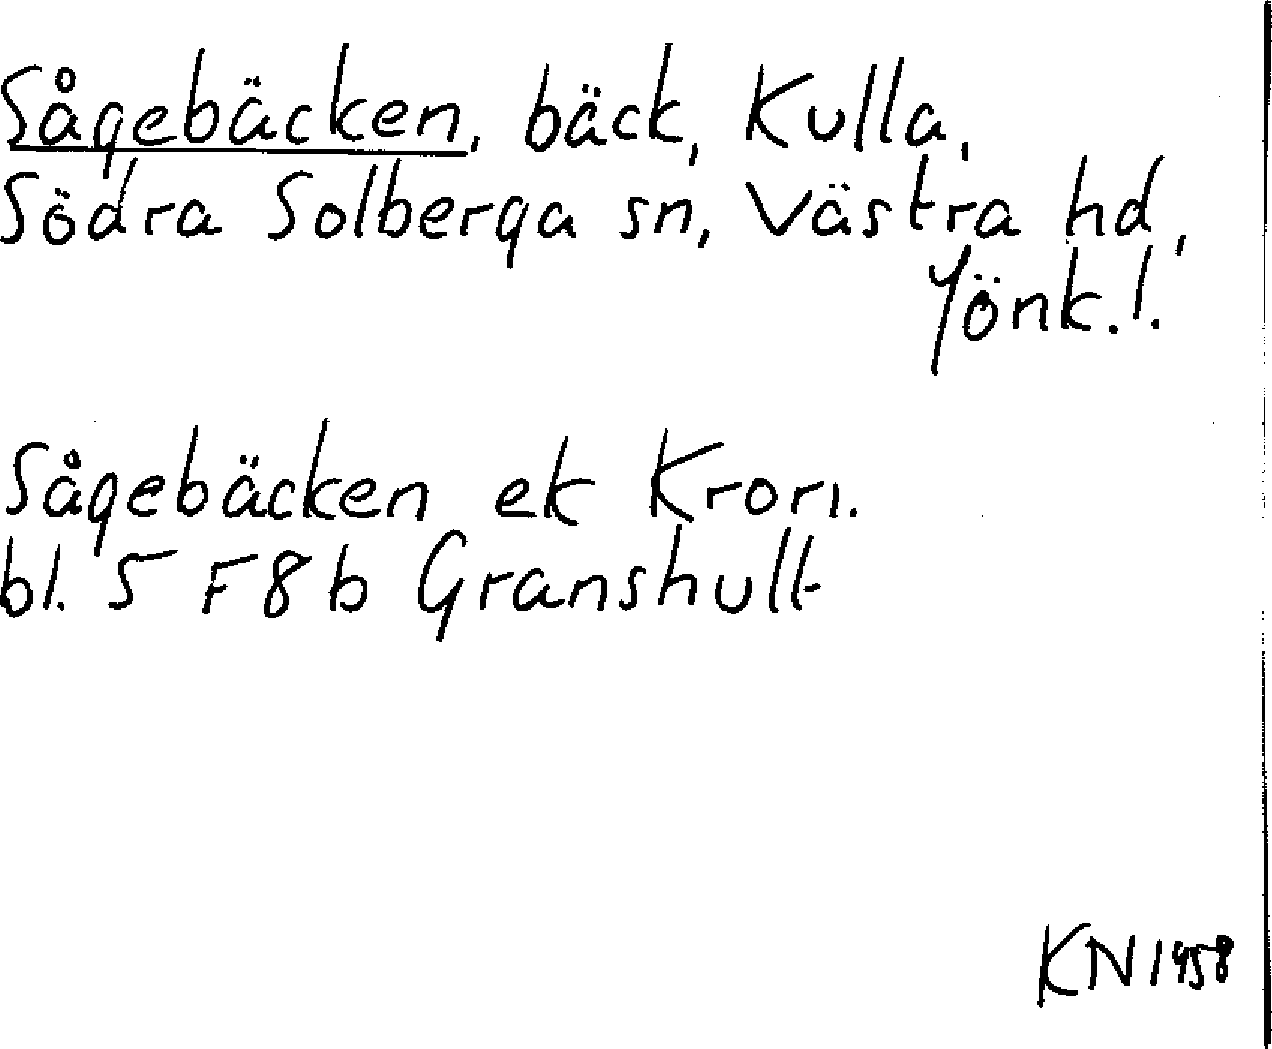 Sågebäcken, bäck, Kulla,
Södra Solberga sn, Västra hd,
Jönk. l.
Sågebäcken ek Kron.
bl. 5 F 8 b Granshult
KN 1958